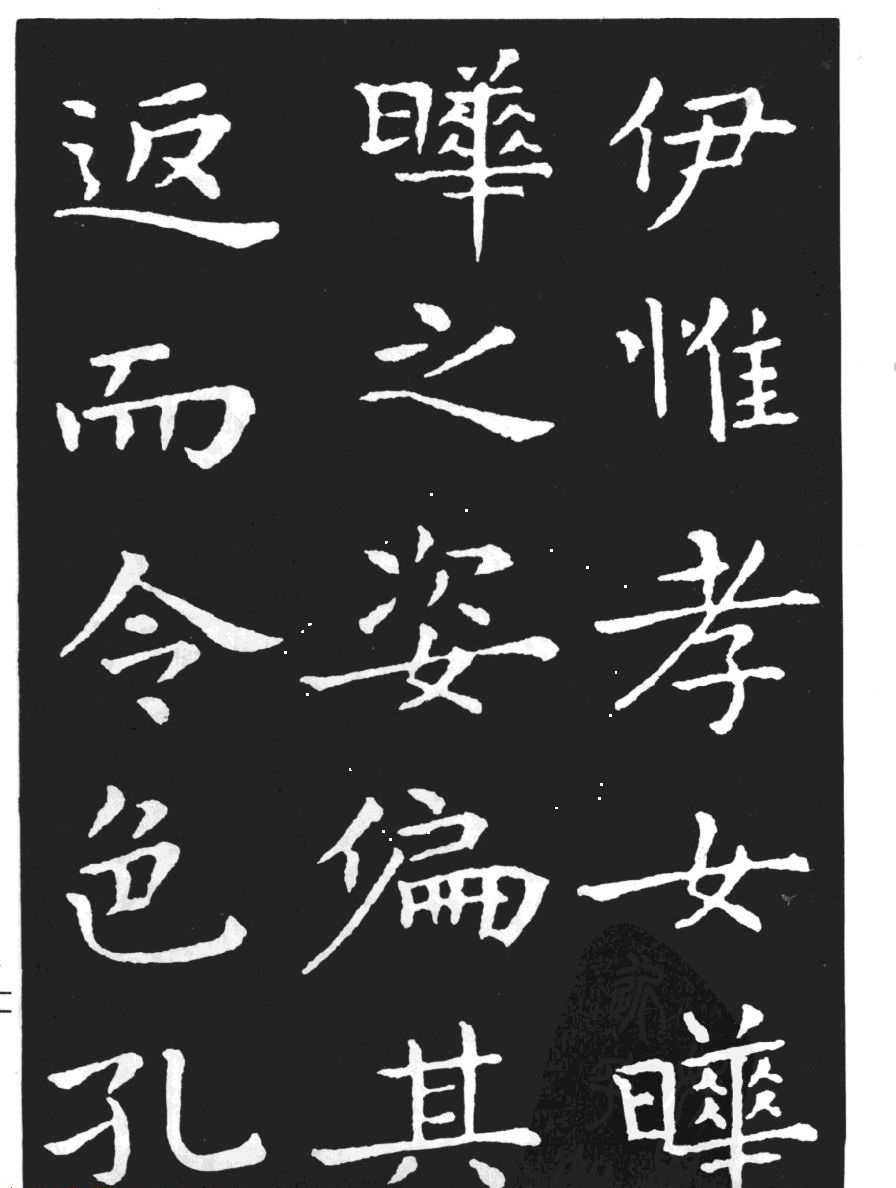 伊惟孝女曄
曄之姿偏其
返而令色孔